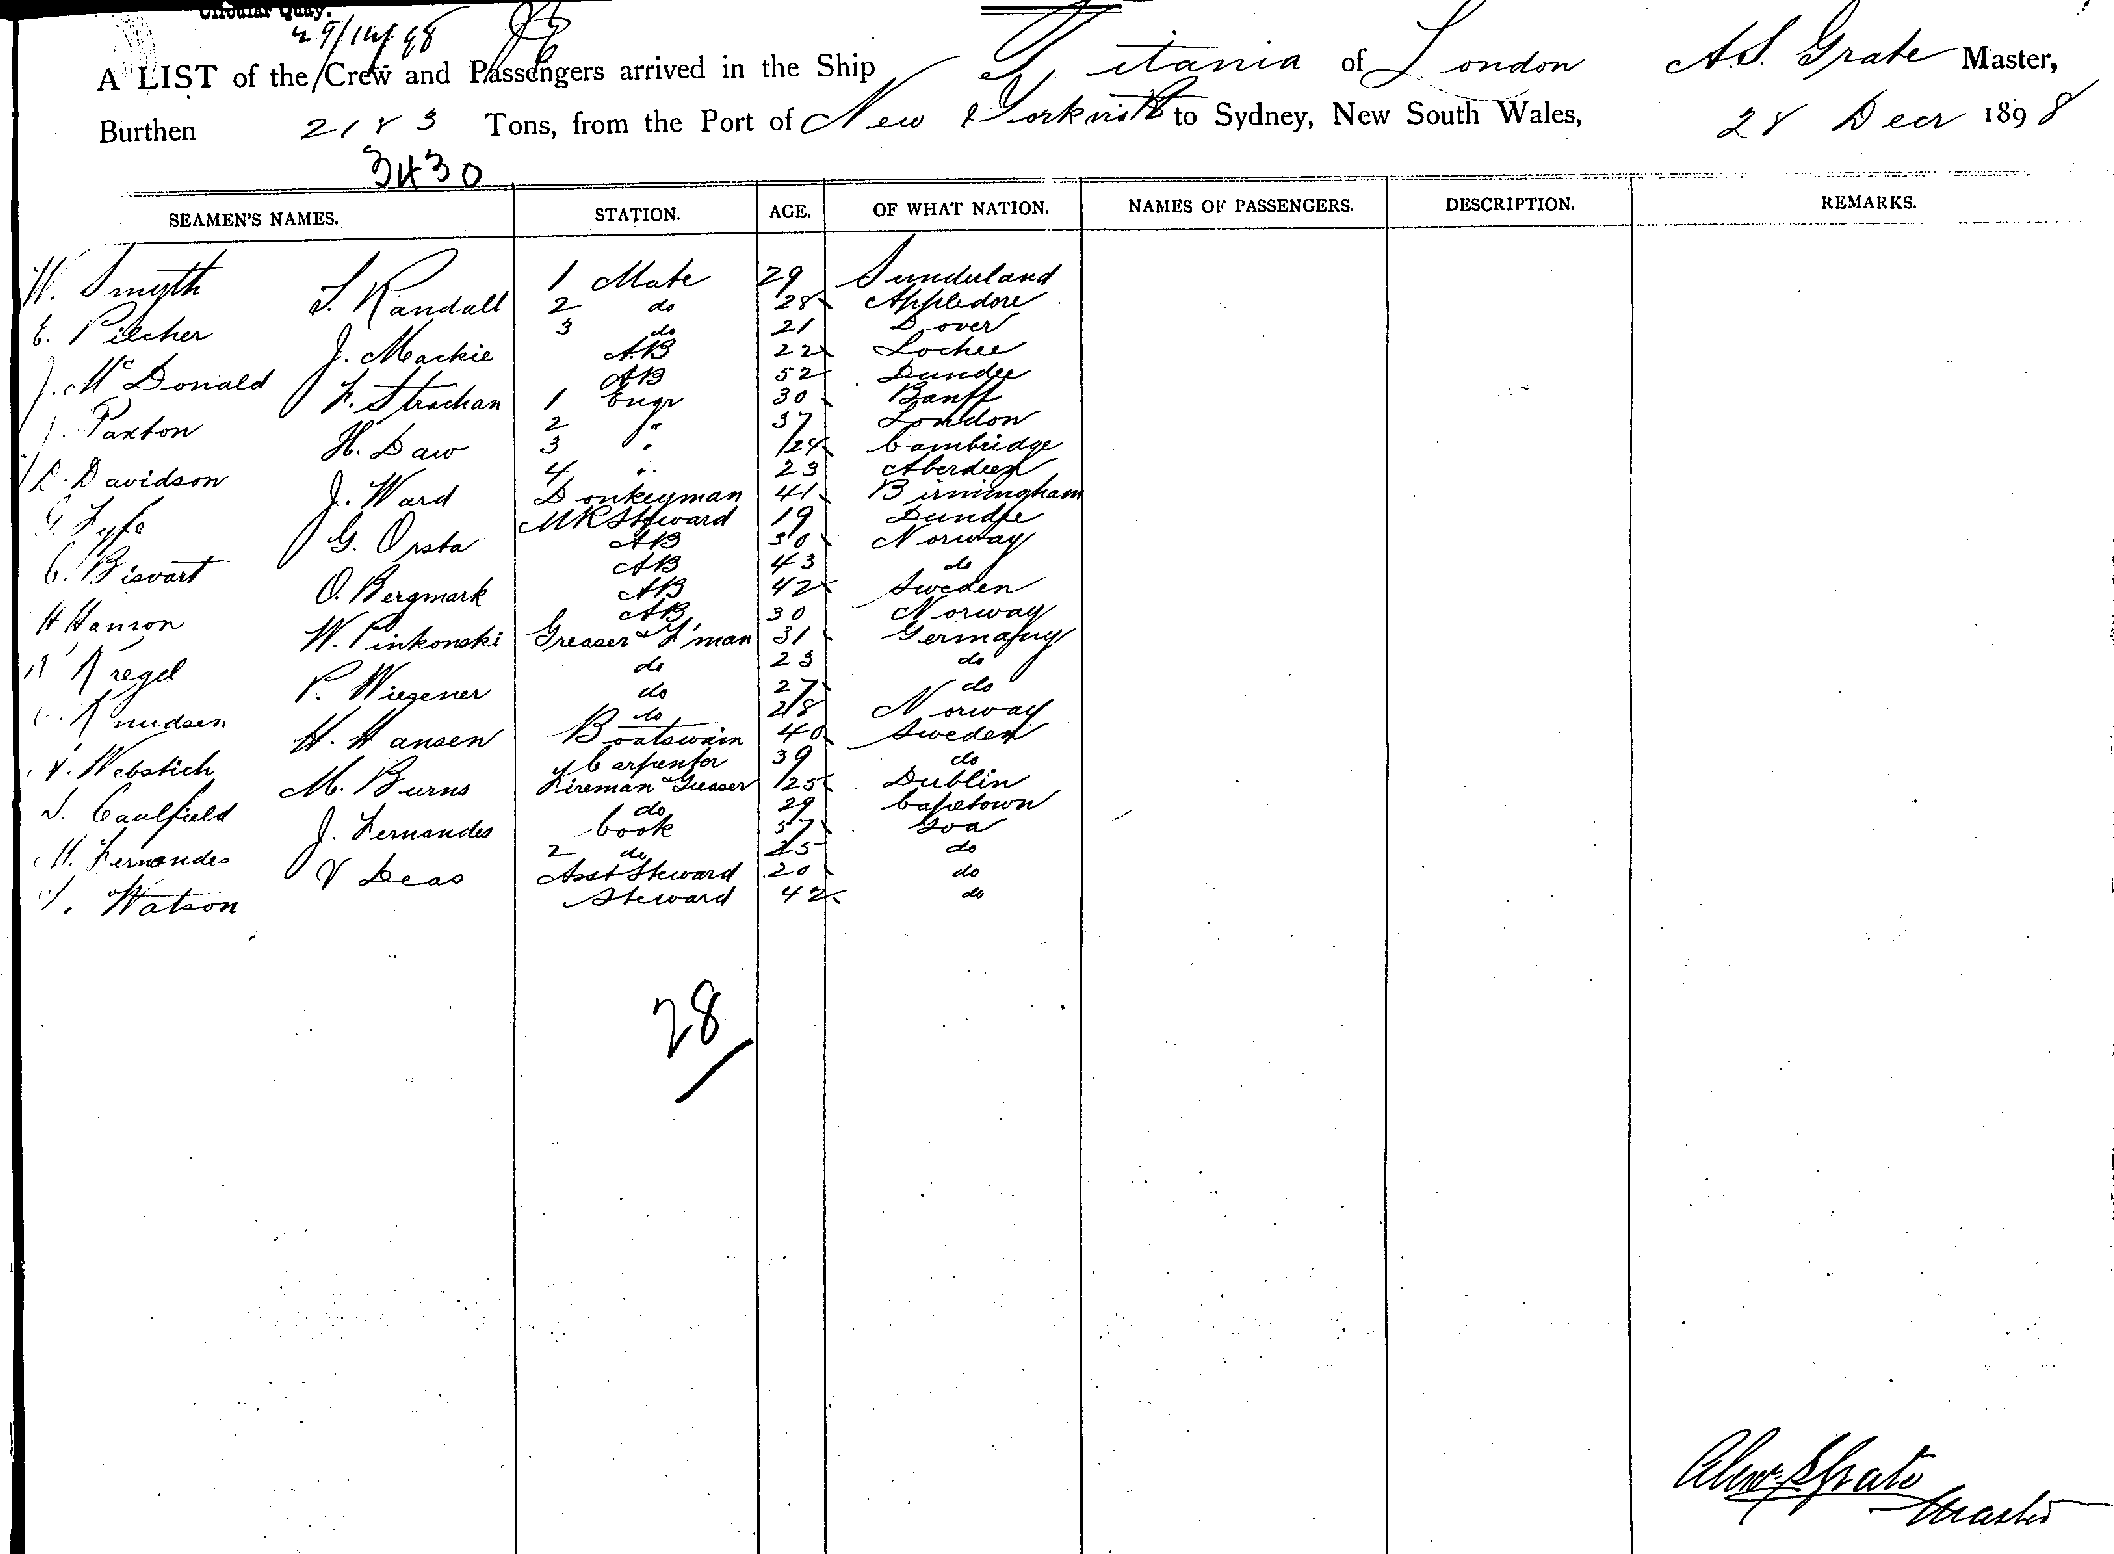 Circular Quay.
29/12/98
A LIST of the Crew and Passengers arrived in the Ship Titania of London A.S. Grate Master,
Burthen 2183 Tons, from the Port of New York to Sydney, New South Wales, 28 Decr 1898
3430
SEAMEN'S NAMES. STATION. AGE. OF WHAT NATION. NAMES OF PASSENGERS. DESCRIPTION. REMARKS.
W. Smyth 1 Mate 29 Sunderland
S. Randall 2 do 28 Appledore
E. Pilcher 3 do 21 Dover
J. Mackie AB 22 Lochee
J. McDonald AB 52 Dundee
F. Strachan 1 Engr 30 Banff
J. Paxton 2 " 37 London
H. Daw 3 " 24 Cambridge
D. Davidson 4 " 23 Aberdeen
J. Ward Donkeyman 41 Birmingham
G Fyfe MR Steward 19 Dundee
G. Orsta AB 30 Norway
C. Bisvart AB 43 do
O. Bergmark AB 42 Sweden
H Hanson AB 30 Norway
W. Pinkonski Greaser & F'man 31 Germany
Kregel do 23 do
P. Wiegener do 27 do
Knudsen do 28 Norway
H. Hansen Boatswain 40 Sweden
Webstich Carpenter 39 do
M. Burns Fireman & Greaser 25 Dublin
Caulfield do 29 Capetown
J. Fernandes Cook 37 Goa
M. Fernandes 2 do 25 do
V Deas Asst Steward 20 do
Watson Steward 42 do
28
Alexr S Grate
Master